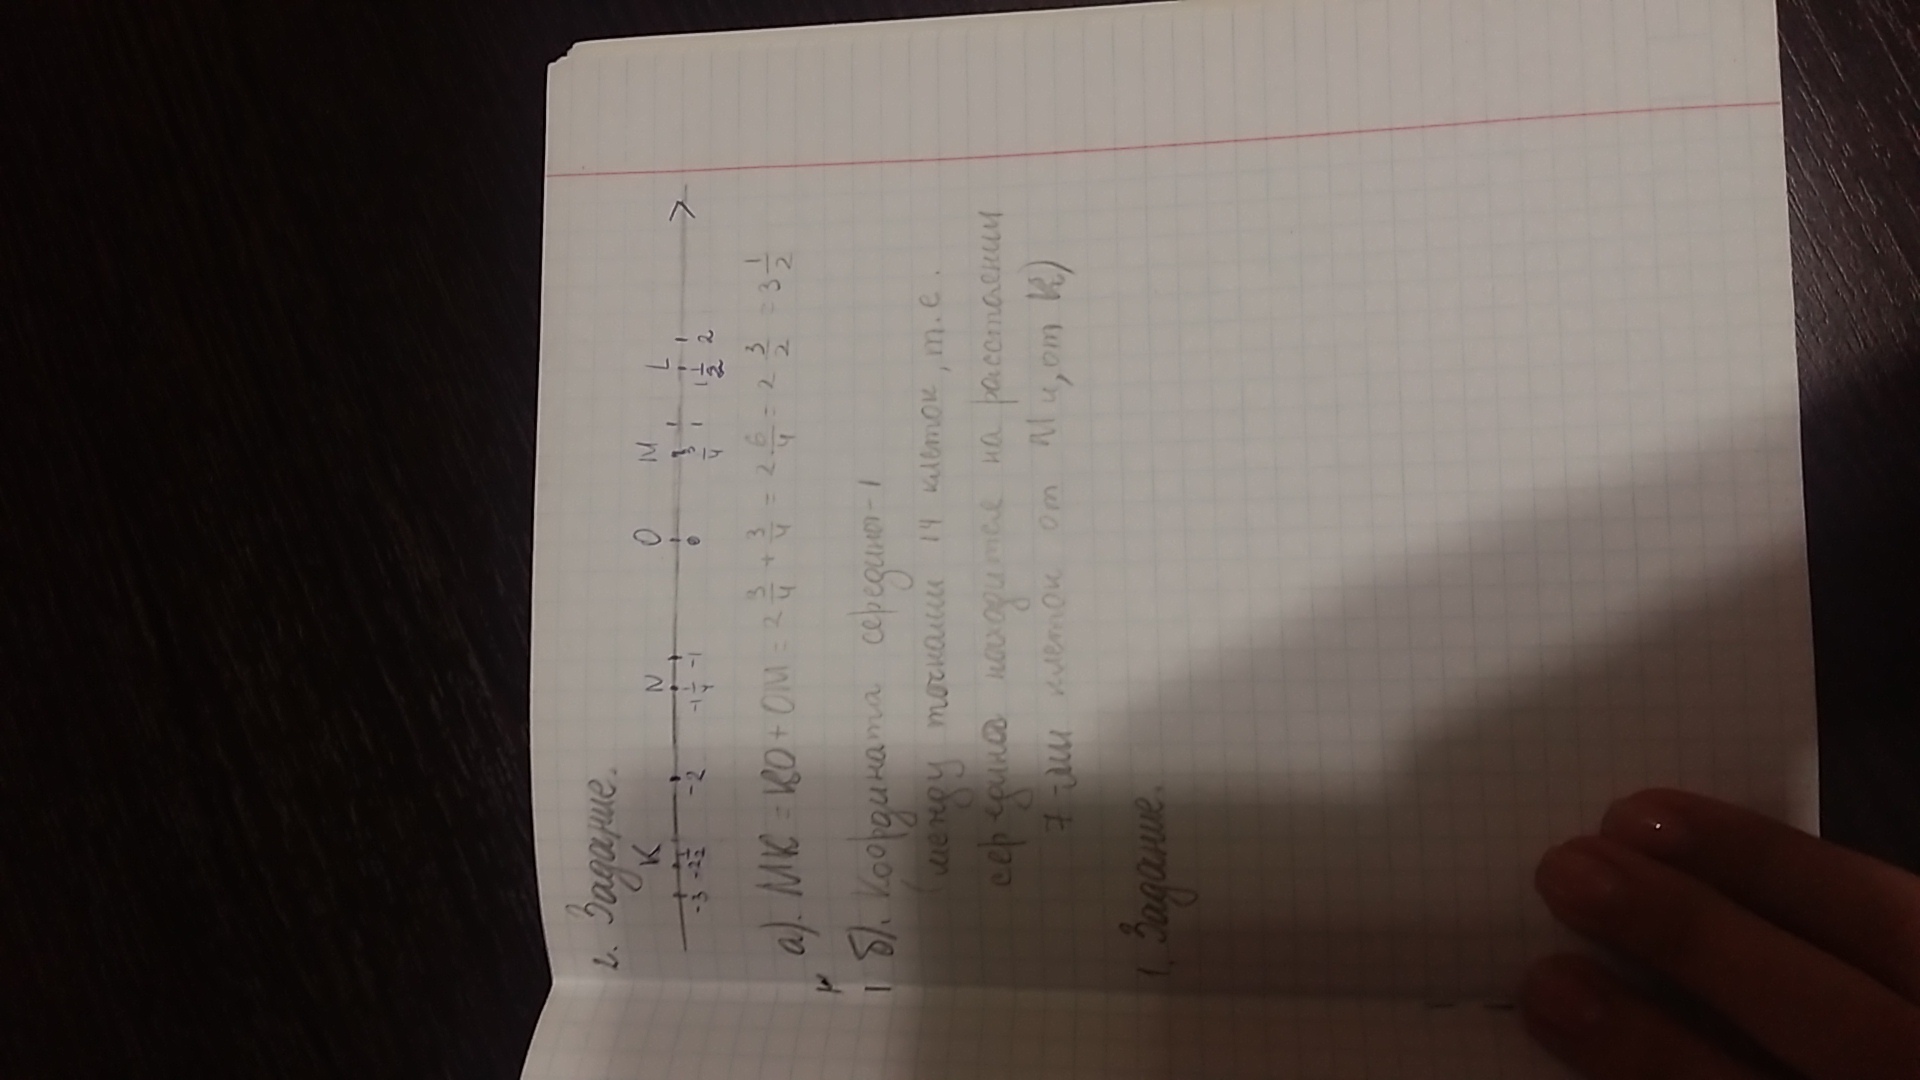 2. Задание.
K N O M L
-3 -2 1/2 -2 -1 1/4 -1 0 3/4 1 1 1/2 2
а). MK = KO + OM = 2 3/4 + 3/4 = 2 6/4 = 2 3/2 = 3 1/2
б). Координата середины -1
(между точками 14 клеток, т.е.
середина находится на расстоянии
7-ми клеток от M и, от K)
1. Задание.